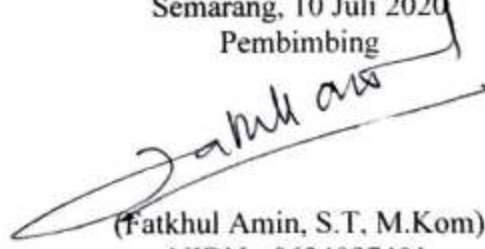 Semarang, 10 Juli 2020
Pembimbing
(Fatkhul Amin, S.T, M.Kom)